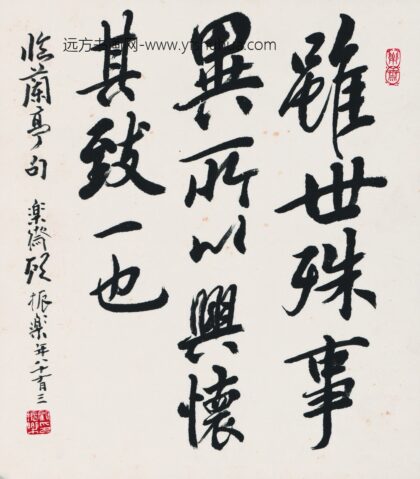 雖世殊事
異所以興懷
其致一也
臨蘭亭句 樂齋 顾振樂年八十有三
远方书画网-www.y